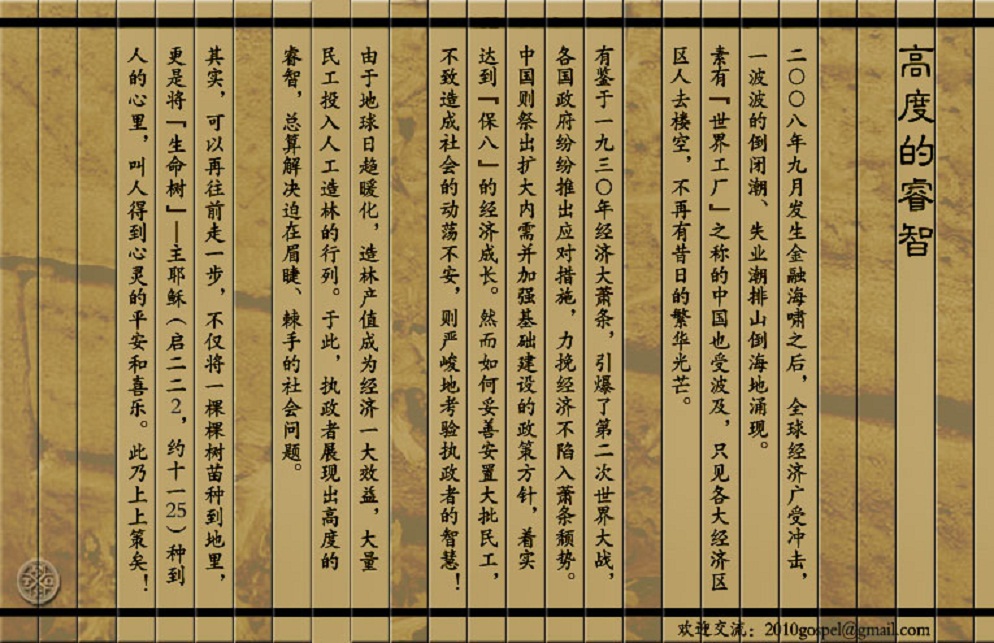 高度的睿智
二〇〇八年九月发生金融海啸之后，全球经济广受冲击，
一波波的倒闭潮、失业潮排山倒海地涌现。
素有『世界工厂』之称的中国也受波及，只见各大经济区
区人去楼空，不再有昔日的繁华光芒。
有鉴于一九三〇年经济大萧条，引爆了第二次世界大战，
各国政府纷纷推出应对措施，力挽经济不陷入萧条颓势。
中国则祭出扩大内需并加强基础建设的政策方针，着实
达到『保八』的经济成长。然而如何妥善安置大批民工，
不致造成社会的动荡不安，则严峻地考验执政者的智慧！
由于地球日趋暖化，造林产值成为经济一大效益，大量
民工投入人工造林的行列。于此，执政者展现出高度的
睿智，总算解决迫在眉睫、棘手的社会问题。
其实，可以再往前走一步，不仅将一棵棵树苗种到地里，
更是将『生命树』——主耶稣（启二二2，约十一25）种到
人的心里，叫人得到心灵的平安和喜乐。此乃上上策矣！
欢迎交流：2010gospel@gmail.com